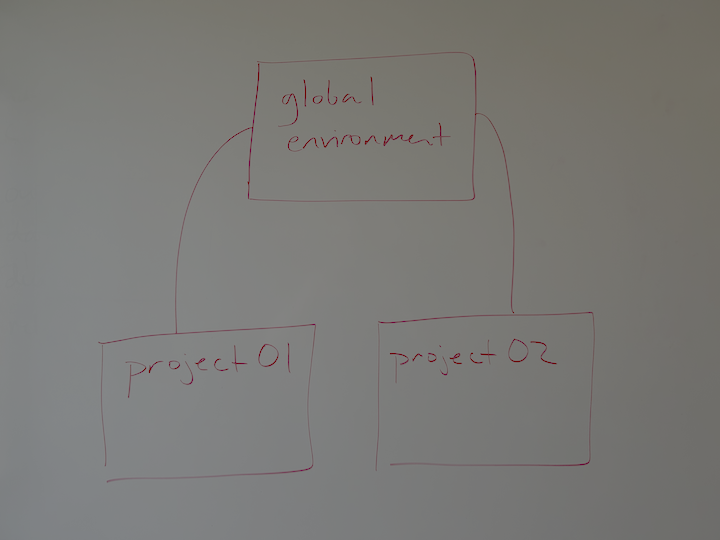 global
environment
project 01
project 02